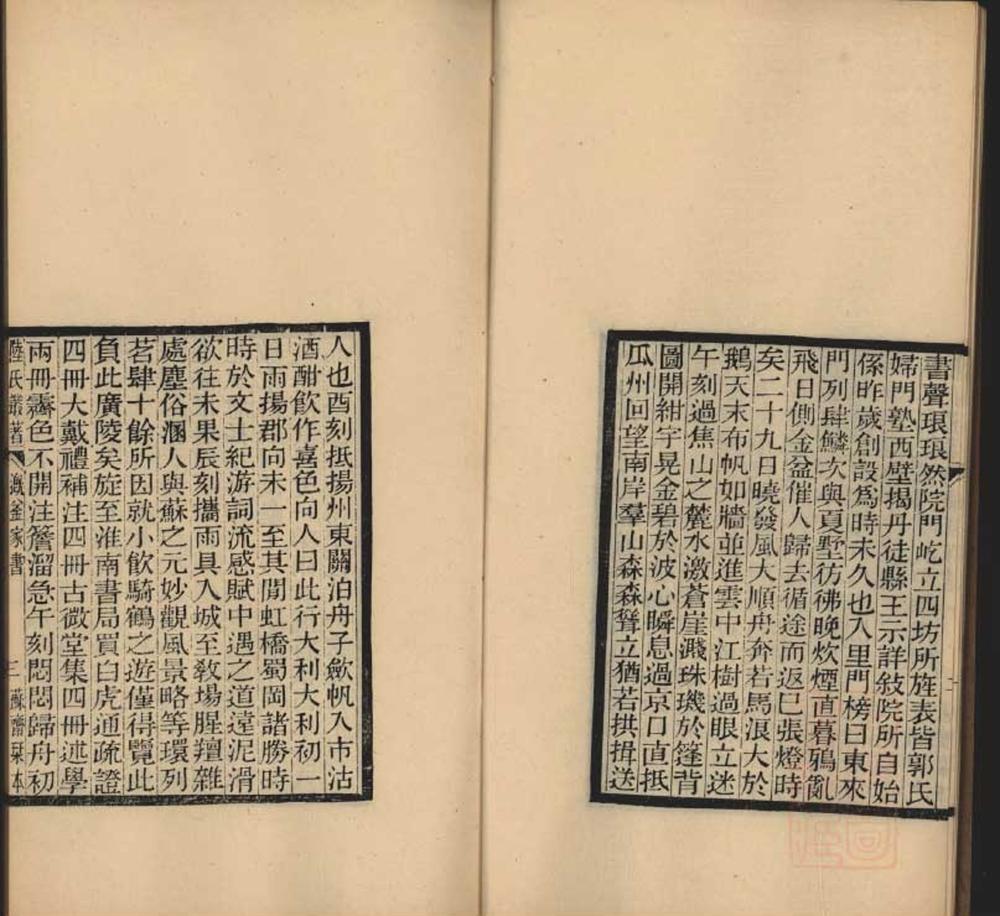 書聲琅琅然院門屹立四坊所旌表皆郭氏
婦門塾西壁揭丹徒縣王示詳敍院所自始
係昨歲創設爲時未久也入里門榜曰東來
門列肆鱗次與夏墅彷彿晚炊煙直暮鴉亂
飛日側金盆催人歸去循途而返巳張燈時
矣二十九日曉發風大順舟奔若馬浪大於
鵝天末布帆如牆並進雲中江樹過眼立迷
午刻過焦山之麓水激蒼崖濺珠璣於篷背
圖開紺宇晃金碧於波心瞬息過京口直抵
瓜州回望南岸羣山森森聳立猶若拱揖送
人也酉刻抵揚州東關泊舟子歛帆入市沽
酒酣飲作喜色向人曰此行大利大利初一
日雨揚郡向未一至其閒虹橋蜀岡諸勝時
時於文士紀游詞流感賦中遇之道遠泥滑
欲往未果辰刻攜雨具入城至教場腥羶雜
處塵俗溷人與蘇之元妙觀風景略等環列
茗肆十餘所因就小飲騎鶴之遊僅得覽此
負此廣陵矣旋至淮南書局買白虎通疏證
四冊大戴禮補注四冊古微堂集四冊述學
兩冊霽色不開注簷溜急午刻悶悶歸舟初
陸氏叢著 溉釜家書 二 蘇齋栞本